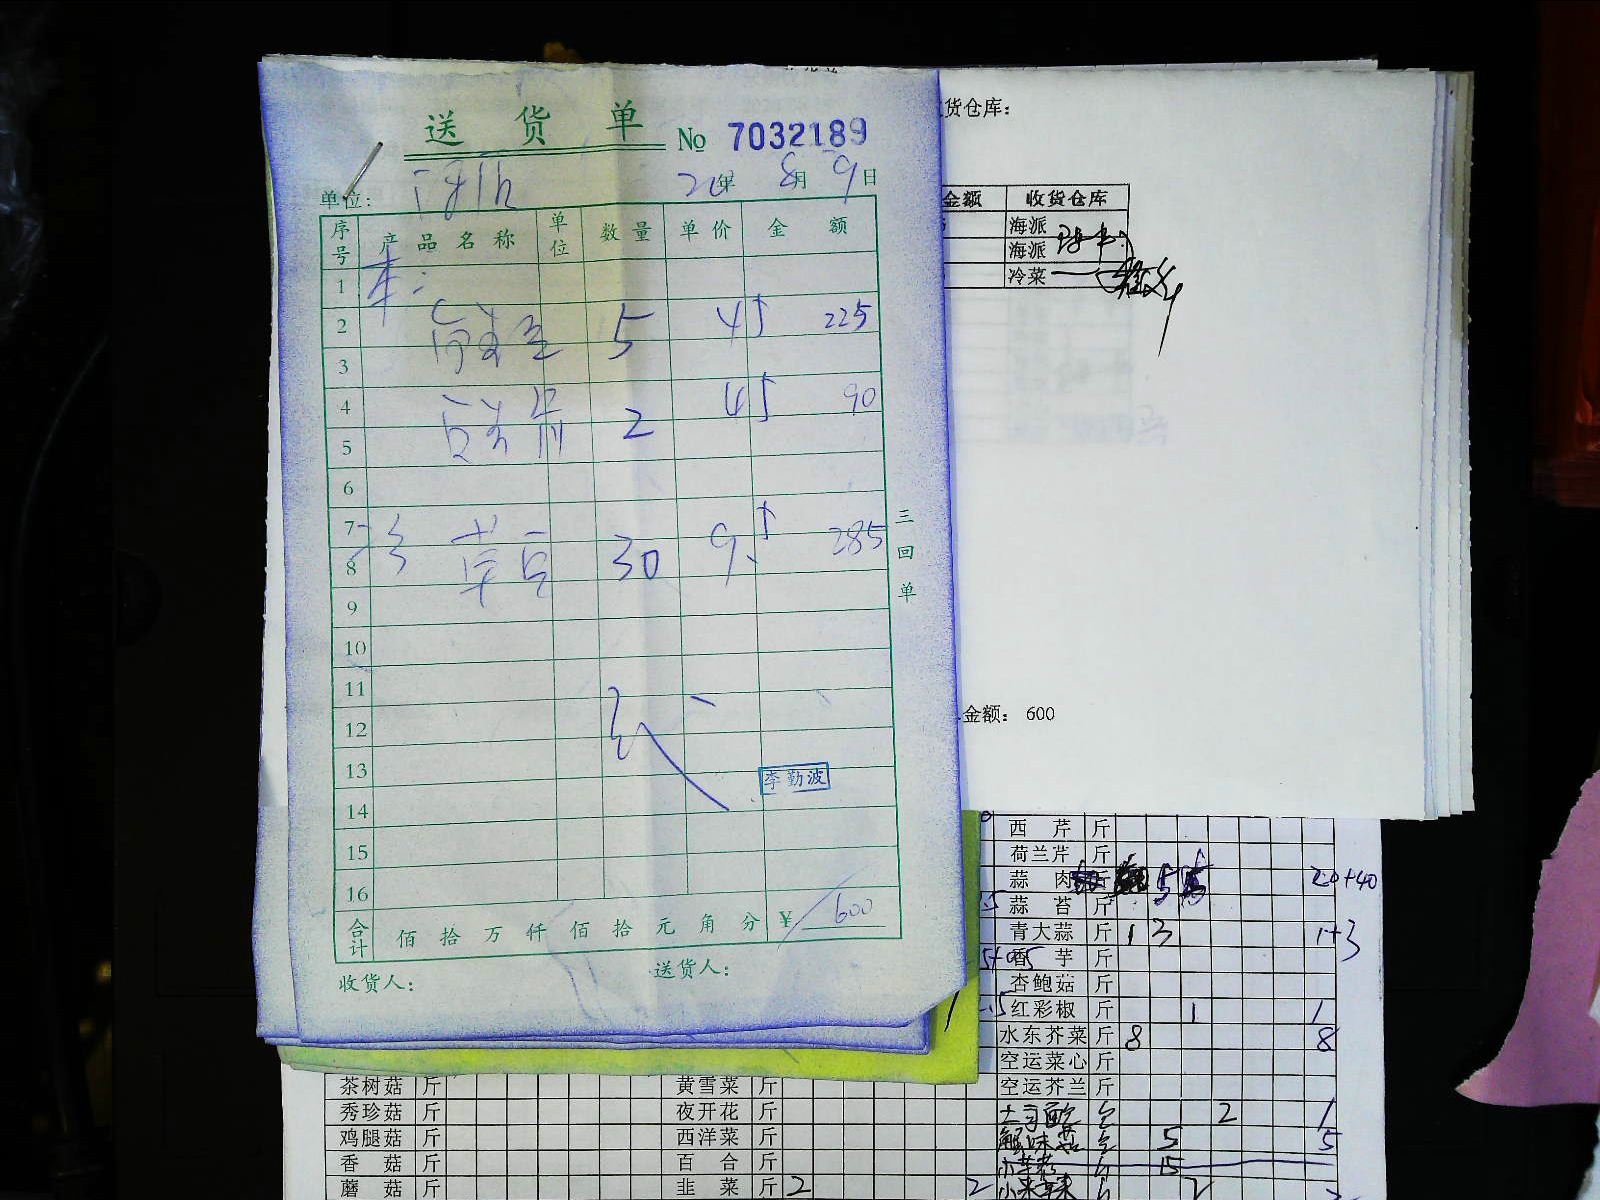 送货单 No 7032189
单位:
年 8月 9日
序号 产品名称 单位 数量 单价 金额
1
2 5 45 225
3
4 2 45 90
5
6
7
8 草豆 30 9.5 285
9
10
11
12
13 李勤波
14
15
16
合计 佰拾万仟佰拾元角分 ¥ 600
收货人: 送货人:
三回单
货仓库:
金额 收货仓库
海派
海派
冷菜
金额: 600
西芹 斤
荷兰芹 斤
蒜肉 斤 5 20+40
蒜苔 斤
青大蒜 斤 1 3 1+3
香芋 斤
杏鲍菇 斤
红彩椒 斤 1 1
水东芥菜 斤 8 8
空运菜心 斤
茶树菇 斤 黄雪菜 斤 空运芥兰 斤
秀珍菇 斤 夜开花 斤 2 1
鸡腿菇 斤 西洋菜 斤 5 5
香菇 斤 百合 斤 15
蘑菇 斤 韭菜 斤 2 2 小米辣 2